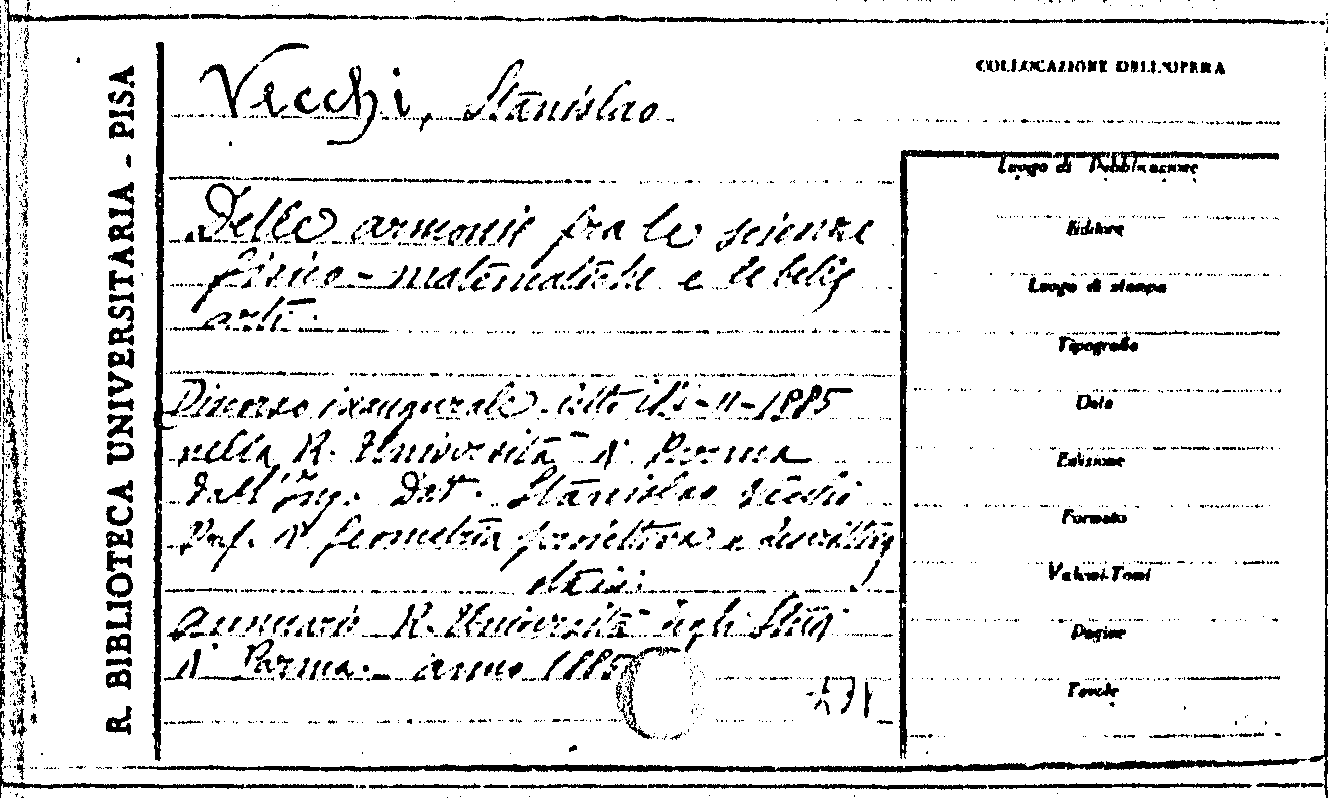 R. BIBLIOTECA UNIVERSITARIA - PISA
Vecchi, Stanislao
Delle armonie fra le scienze
fisico-matematiche e le belle
arti.
Discorso inaugurale letto il
nella R. Università di Parma
dall'Ing. Dott. Stanislao Vecchi
Prof. di Geometria proiettiva e descrittiva
Annuario R. Università degli Studi
di Parma. anno 1885
COLLOCAZIONE DELL'OPERA
Luogo di Pubblicazione
Editore
Luogo di stampa
Tipografia
Data
Edizione
Formato
Volumi-Tomi
Pagine
Tavole